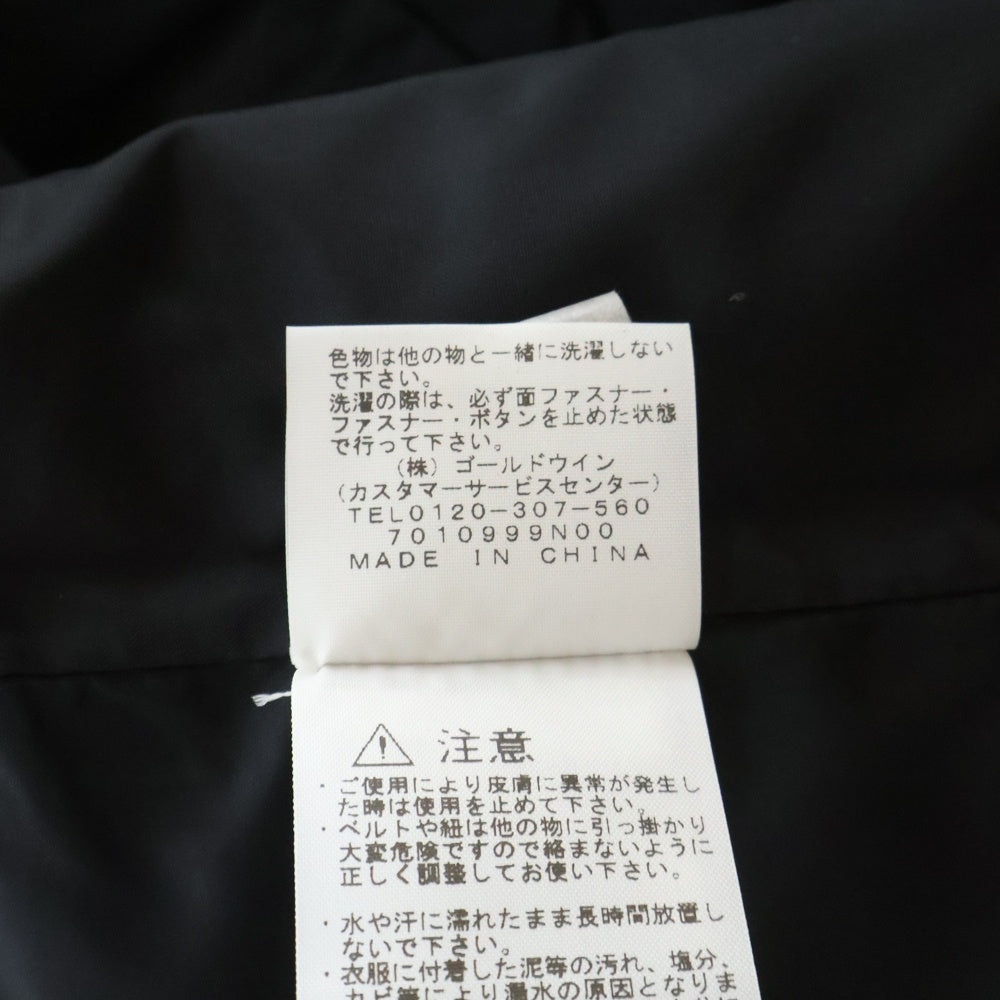 色物は他の物と一緒に洗濯しない
で下さい。
洗濯の際は、必ず面ファスナー・
ファスナー・ボタンを止めた状態
で行って下さい。
(株) ゴールドウイン
(カスタマーサービスセンター)
TEL0120-307-560
7010999N00
MADE IN CHINA
注意
・ご使用により皮膚に異常が発生し
た時は使用を止めて下さい。
・ベルトや紐は他の物に引っ掛かり
大変危険ですので絡まないように
正しく調整してお使い下さい。
・水や汗に濡れたまま長時間放置し
ないで下さい。
・衣服に付着した泥等の汚れ、塩分、
カビ等により漏水の原因となりま